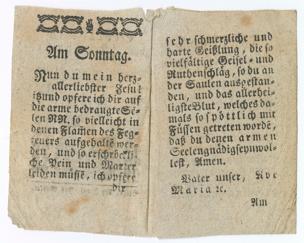 Am Sonntag.
Nun du mein herz-
allerliebster Jesu!
ich opfere ich dir auf
die arme bedrangte See-
len NN. so vielleicht in
denen Flammen des Feg-
feuers aufgehalten wer-
den, und so erschröckli-
che Pein und Marter
leiden müssē, ich opfere
dir
sehr schmerzliche und
harte Geißlung, die so
vielfältige Geisel- und
Ruthenschläg, so du an
der Saulen ausgestan-
den, und das allerhei-
ligste Blut, welches da-
mals so spöttlich mit
Füssen getreten wordē,
daß du denen armen
Seelen gnädig seyn wol-
lest, Amen.
Vater unser, Ave
Maria ꝛc.
Am